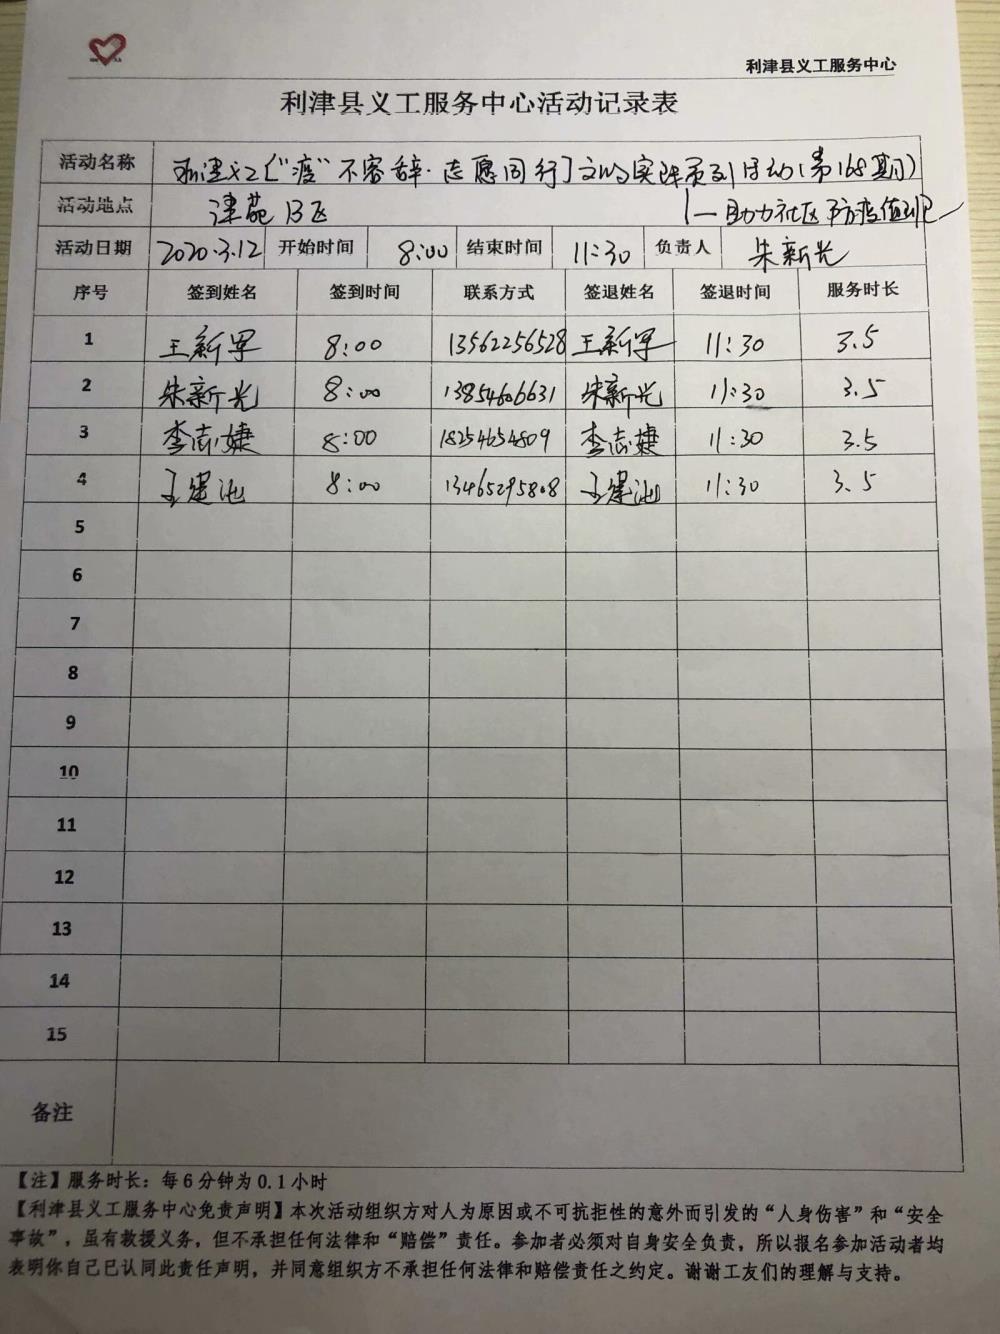 利津县义工服务中心
利津县义工服务中心活动记录表
活动名称 利津义工["疫"不容辞·志愿同行]文明实践系列活动(第168期)
活动地点 津苑B区 —助力社区防疫值班
活动日期 2020.3.12 开始时间 8:00 结束时间 11:30 负责人 朱新光
序号 签到姓名 签到时间 联系方式 签退姓名 签退时间 服务时长
1 王新军 8:00 13562256528 王新军 11:30 3.5
2 朱新光 8:00 13854606631 朱新光 11:30 3.5
3 李志婕 8:00 18254654809 李志婕 11:30 3.5
4 王建池 8:00 13465295808 王建池 11:30 3.5
5
6
7
8
9
10
11
12
13
14
15
备注
【注】服务时长：每6分钟为0.1小时
【利津县义工服务中心免责声明】本次活动组织方对人为原因或不可抗拒性的意外而引发的“人身伤害”和“安全
事故”，虽有救援义务，但不承担任何法律和“赔偿”责任。参加者必须对自身安全负责，所以报名参加活动者均
表明你自己已认同此责任声明，并同意组织方不承担任何法律和赔偿责任之约定。谢谢工友们的理解与支持。